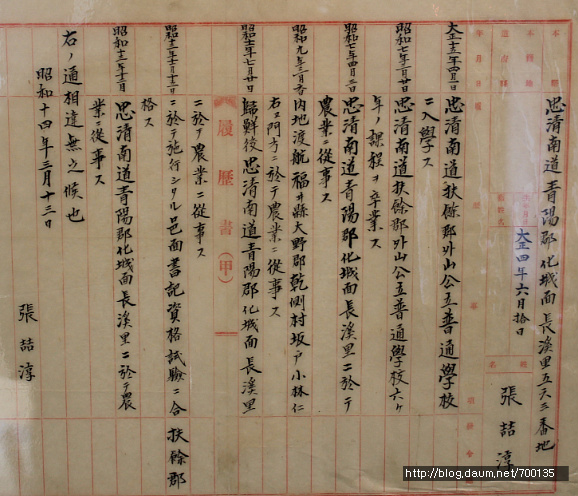 忠清南道青陽郡化城面長溪里五六三番地
大正四年六月拾日
張喆淳
大正十三年四月一日
忠清南道扶餘郡外山公立普通學校
ニ入學ス
昭和
忠清南道扶餘郡外山公立普通學校六ケ
年ノ課程ヲ卒業ス
昭和七年四月
忠清南道青陽郡化城面長溪里ニ於テ
農業ニ從事ス
昭和九年三月
内地渡航福井縣大野郡乾側村坂戸小林仁
右エ門方ニ於テ農業ニ從事ス
昭和十一年七月廿日
歸鮮後忠清南道青陽郡化城面長溪里
履歷書(甲)
ニ於テ農業ニ從事ス
昭和十三年十月十三日
扶餘郡
ニ於テ施行シタル邑面書記資格試驗ニ合
格ス
昭和十三年十二月
忠清南道青陽郡化城面長溪里ニ於テ農
業ニ從事ス
右ノ通相違無之候也
昭和十四年三月十三日
張喆淳
http://blog.daum.net/700135